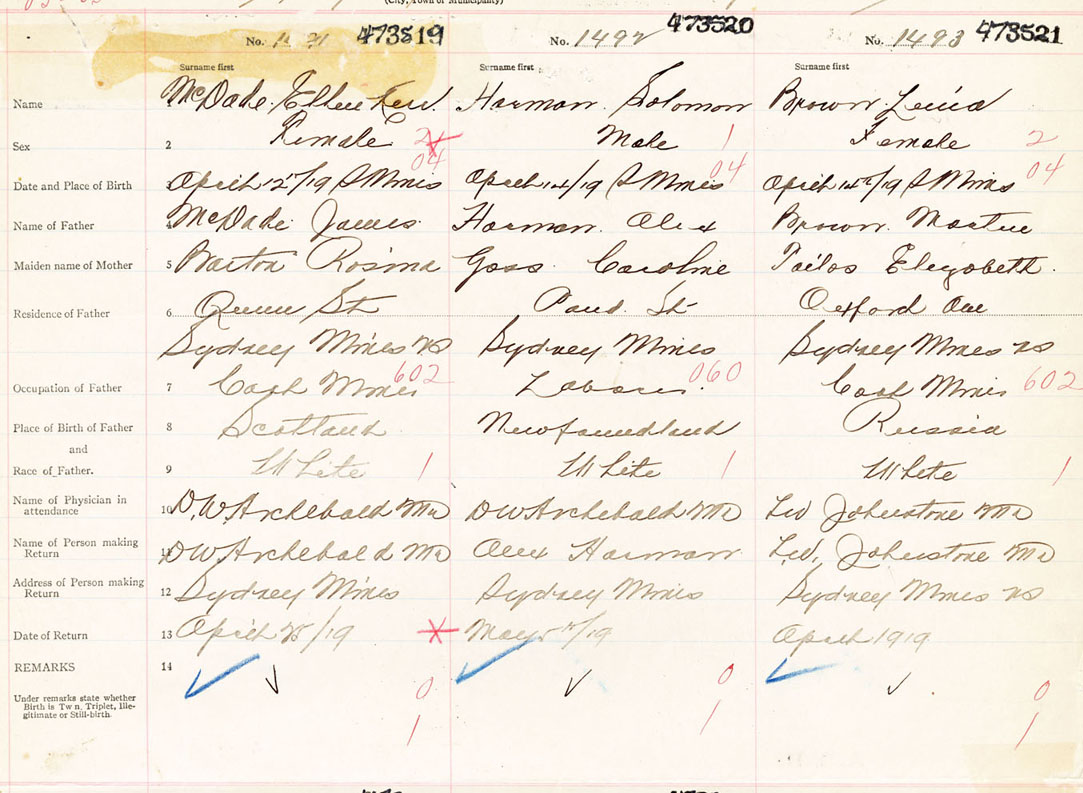 (City, Town or Municipality)
No. 1491 473519 No. 1492 473520 No. 1493 473521
Surname first Surname first Surname first
Name McDade. Ellen Harman. Solomon Brown Lena
Sex 2 Female 2 Male 1 Female 2
04 04 04
Date and Place of Birth 3 April 12/19 S Mines April 14/19 S Mines April 14/19 S Mines
Name of Father 4 McDade James Harman. Alex Brown. Martin
Maiden name of Mother 5 Barton Rosina Goss. Caroline Elizabeth.
Residence of Father 6 Queen St St Oxford Ave
Sydney Mines NS Sydney Mines Sydney Mines NS
Occupation of Father 7 Coal Miner 602 Laborer. 060 Coal Miner 602
Place of Birth of Father 8 Scotland Newfoundland Russia
and
Race of Father. 9 White 1 White 1 White 1
Name of Physician in
attendance 10 D.W Archebald MD DW Archebald MD LW Johnstone MD
Name of Person making
Return 11 DW Archebald MD Alex Harman LW. Johnstone MD
Address of Person making
Return 12 Sydney Mines Sydney Mines Sydney Mines NS
Date of Return 13 April 25/19 May 5/19 April 1919
REMARKS 14
0 0 0
Under remarks state whether
Birth is Twin, Triplet, Ille-
gitimate or Still-birth.
1 1 1